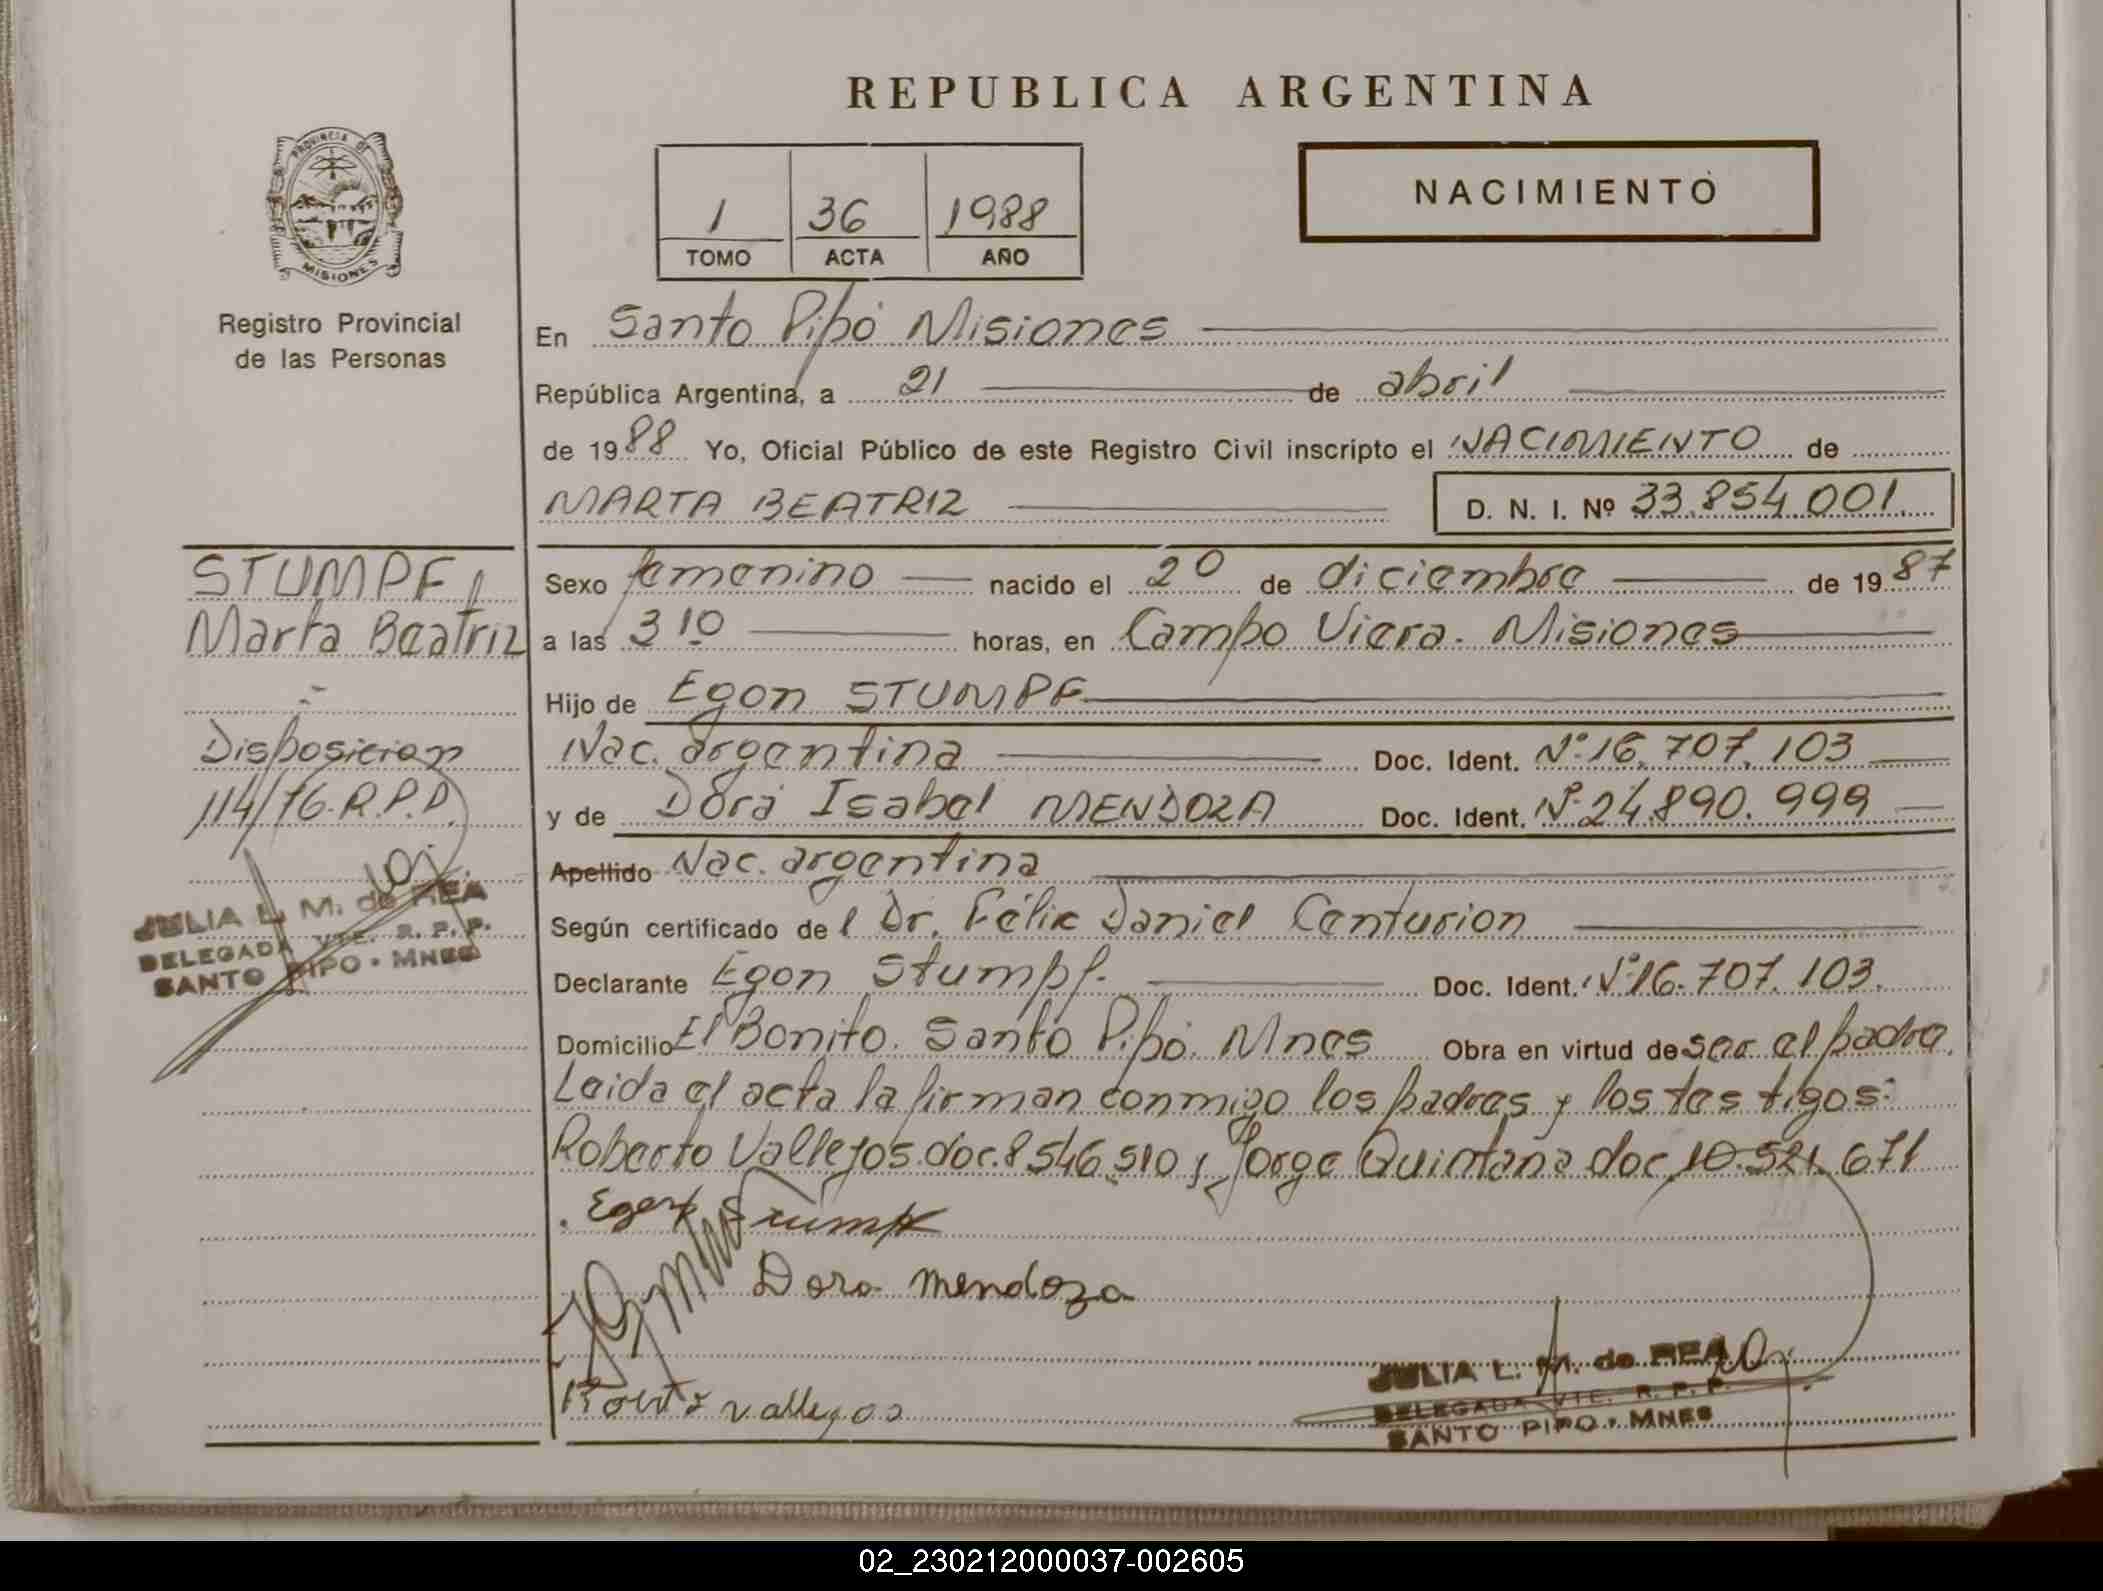 REPUBLICA ARGENTINA
PROVINCIA DE
MISIONES
Registro Provincial
de las Personas
1 36 1988
TOMO ACTA AÑO
NACIMIENTO
En Santo Pipó Misiones
República Argentina, a 21 de abril
de 1988 Yo, Oficial Público de este Registro Civil inscripto el NACIMIENTO de
MARTA BEATRIZ D. N. I. Nº 33.854.001.
STUMPF,
Marta Beatriz
Disposicion
114/76.R.P.P.
JULIA L. M. de REA
DELEGADA VTE. R. P. P.
SANTO PIPO - MNES
Sexo femenino nacido el 20 de diciembre de 1987
a las 3 10 horas, en Campo Viera. Misiones
Hijo de Egon STUMPF
Nac. argentina Doc. Ident. Nº 16.707.103
y de Dora Isabel MENDOZA Doc. Ident. Nº 24.890.999
Apellido Nac. argentina
Según certificado del Dr. Félix Daniel Centurion
Declarante Egon Stumpf. Doc. Ident. Nº 16.707.103.
Domicilio El Bonito. Santo Pipó. Mnes Obra en virtud de ser el padre.
Leida el acta la firman conmigo los padres y los testigos:
Roberto Vallejos.doc.8546.510 y Jorge Quintana doc 10.521.671
Egon Stumpf
Dora Mendoza
Vallejos
JULIA L. M. de REA
DELEGADA VTE. R. P. P.
SANTO PIPO - MNES
02_230212000037-002605